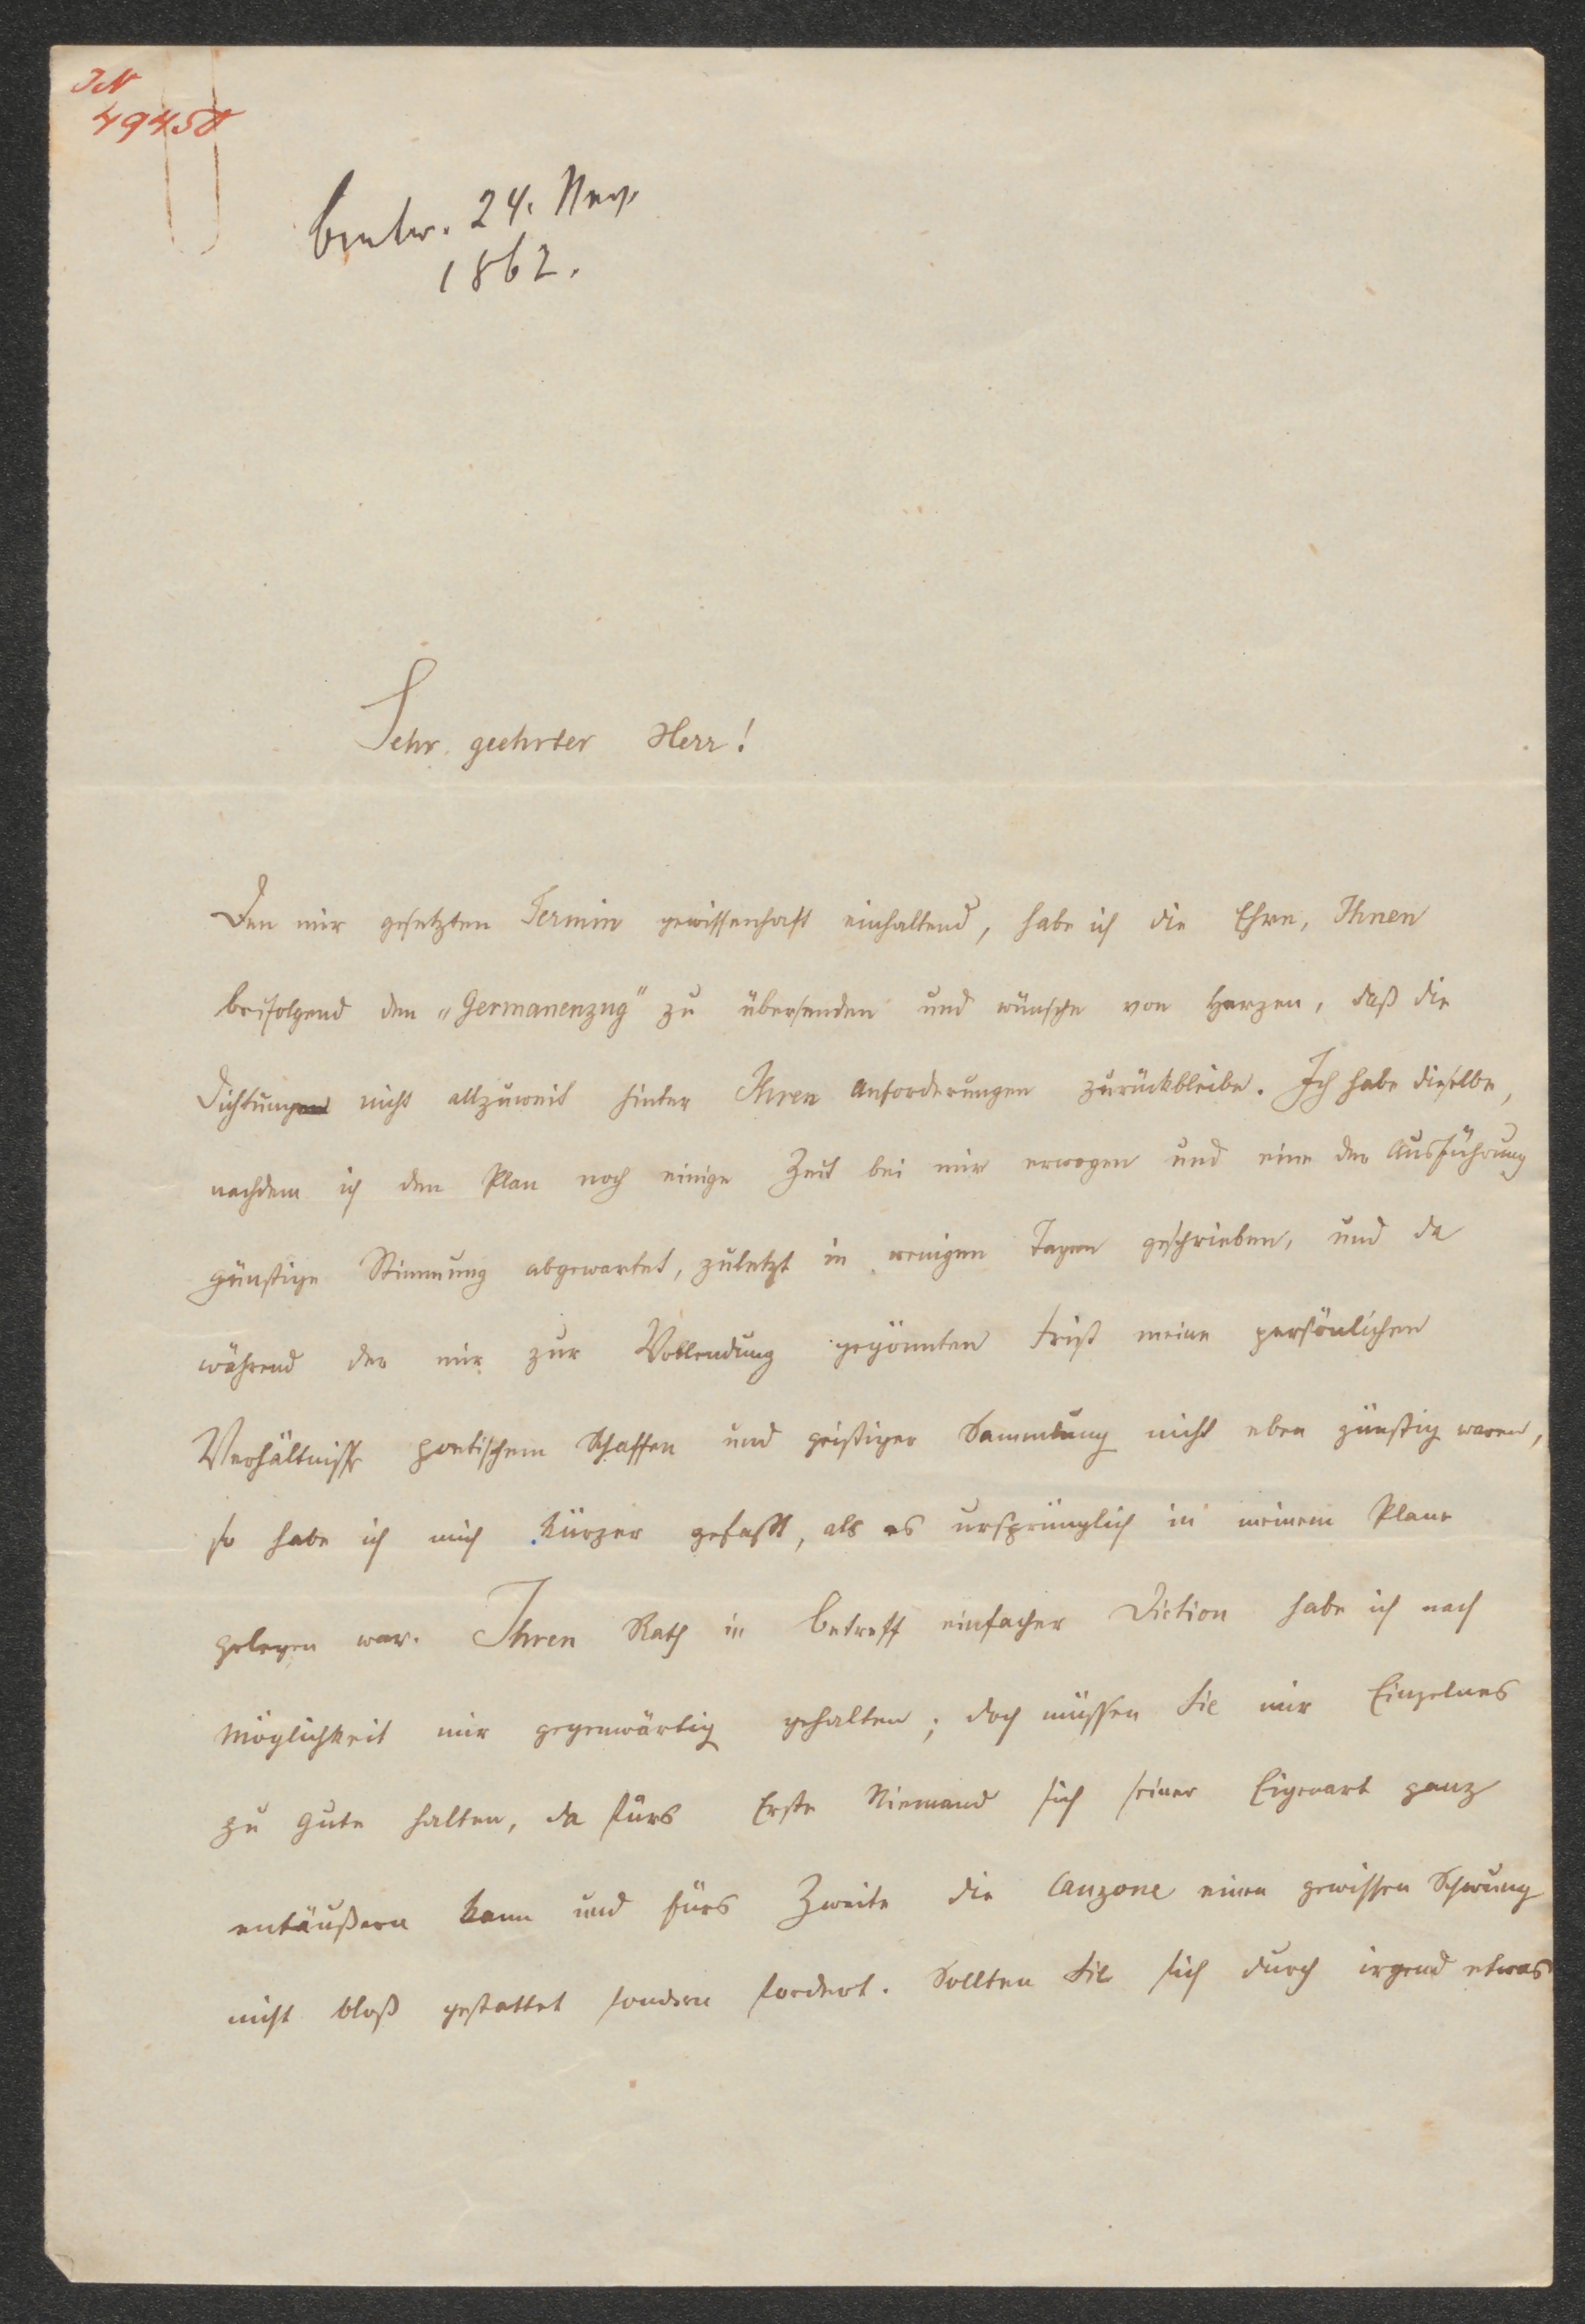 IN
49458
beantw. 24. Nov.
1862.
Sehr geehrter Herr!
Den mir gesetzten Termin gewissenhaft einhaltend, habe ich die Ehre, Ihnen
beifolgend den „Germanenzug" zu übersenden und wünsche von Herzen, daß die
Dichtung nicht allzuweit hinter Ihren Anforderungen zurückbleibe. Ich habe dieselbe,
nachdem ich den Plan noch einige Zeit bei mir erwogen und eine der Ausführung
günstige Stimmung abgewartet, zuletzt in wenigen Tagen geschrieben, und da
während der mir zur Vollendung gegönnten Frist meine persönlichen
Verhältnisse poetischem Schaffen und geistiger Sammlung nicht eben günstig waren,
so habe ich mich kürzer gefaßt, als es ursprünglich in meinem Plane
gelegen war. Ihren Rath in betreff einfacher Diction habe ich nach
Möglichkeit mir gegenwärtig gehalten; doch müssen Sie mir Einzelnes
zu gute halten, da fürs Erste Niemand sich seiner Eigenart ganz
entäußern kann und fürs Zweite die Canzone einen gewissen Schwung
nicht bloß gestattet sondern fordert. Sollten Sie sich durch irgend etwas